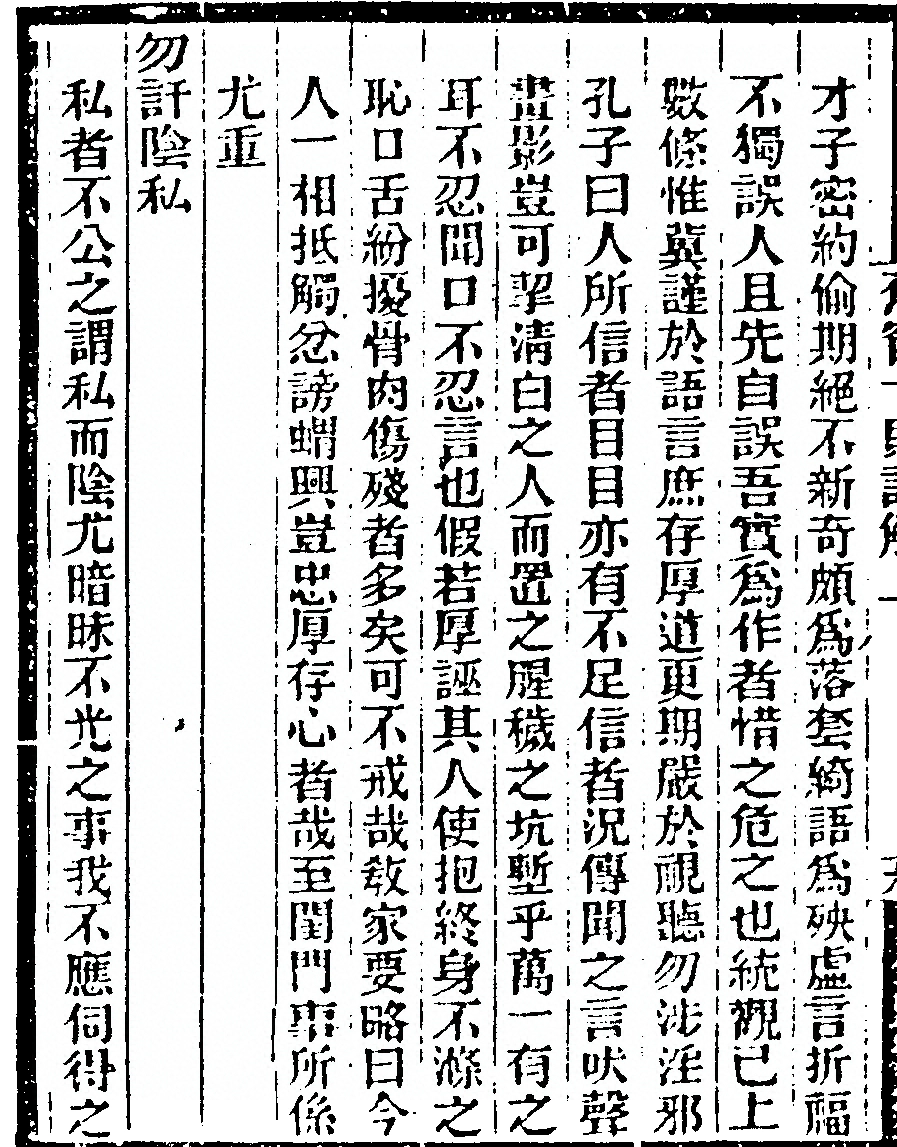 才子密約偷期絕不新奇頗爲落套綺語爲殃虛言折福
不獨誤人且先自誤吾實爲作者惜之危之也統觀已上
數條惟冀謹於語言庶存厚道更期嚴於視聽勿涉淫邪
孔子曰人所信者目目亦有不足信者況傳聞之言吠聲
晝影豈可挈清白之人而置之腥穢之坑塹乎萬一有之
耳不忍聞口不忍言也假若厚誣其人使抱終身不滌之
恥口舌紛擾骨肉傷殘者多矣可不戒哉敎家要略曰今
人一相抵觸忿謗蝟興豈忠厚存心者哉至閨門事所係
尤重
勿訐陰私
私者不公之謂私而陰尤暗昧不光之事我不應伺得之